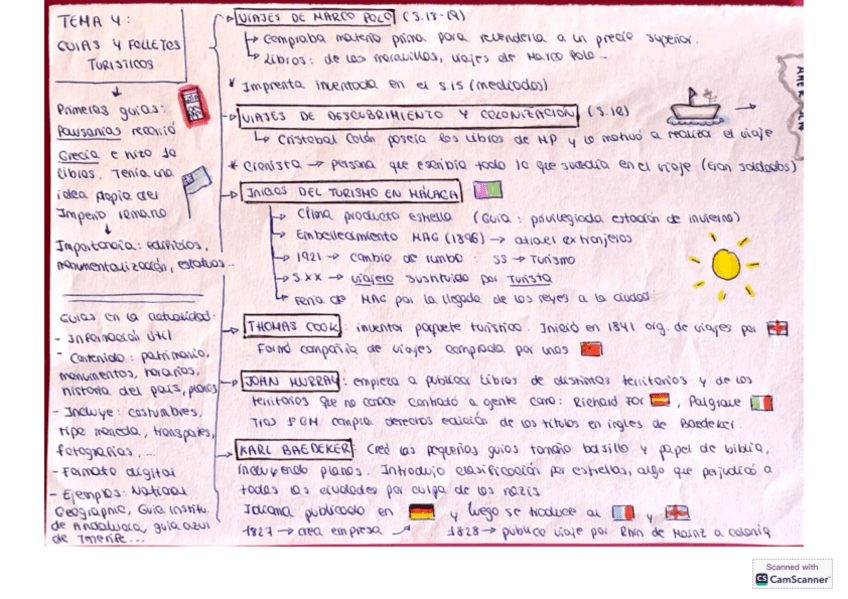 TEMA 4:
GUIAS Y FOLLETOS
TURISTICOS
Primeras guías:
Pausanias recorrió
Grecia e hizo 10
libros. Tenía una
idea propia del
Imperio romano
Importancia: edificios,
monumentalización, estatuas...
Guías en la actualidad:
- Información útil
- Contenido: patrimonio,
monumentos, horarios,
historia del país, planos
- Incluye: costumbres,
tipo moneda, transportes,
fotografías...
- Formato digital
- Ejemplos: National
Geographic, Guía Institu.
de Andalucía, guía azul
de Tenerife...
VIAJES DE MARCO POLO (S.13-14)
Compraba materia prima para revenderla a un precio superior.
Libros: de las maravillas, viajes de Marco Polo...
* Imprenta inventada en el S.15 (mediados)
VIAJES DE DESCUBRIMIENTO Y COLONIZACIÓN
Cristobal Colón poseía los libros de MP y lo motivó a realizar el viaje
* Cronista → persona que escribía todo lo que sucedía en el viaje (Eran soldados)
INICIOS DEL TURISMO EN MÁLAGA
Clima producto estrella (Guía: privilegiada estación de invierno)
Embellecimiento MAG (1896) → atraer extranjeros
1921 → cambio de rumbo: SS → Turismo
S.XX → viajero sustituido por Turista
Feria de MAG por la llegada de los reyes a la ciudad.
THOMAS COOK: inventor paquete turístico. Inició en 1841 org. de viajes por
Formó compañía de viajes comprada por unos
JOHN MURRAY: empieza a publicar libros de distintos territorios y de los
territorios que no conoce contrató a gente como: Richard For , Palgrave
Tras PGM compra derechos edición de los títulos en inglés de Baedeker.
KARL BAEDEKER: Creó las pequeñas guías tamaño bolsillo y papel de biblia,
incluyendo planos. Introdujo clasificación por estrellas, algo que perjudicó a
todas las ciudades por culpa de los nazis
Idioma publicado en y luego se traduce al y
1827 → crea empresa 1828 → publicó viaje por Rhin de Mainz a colonia
Scanned with
CS CamScanner